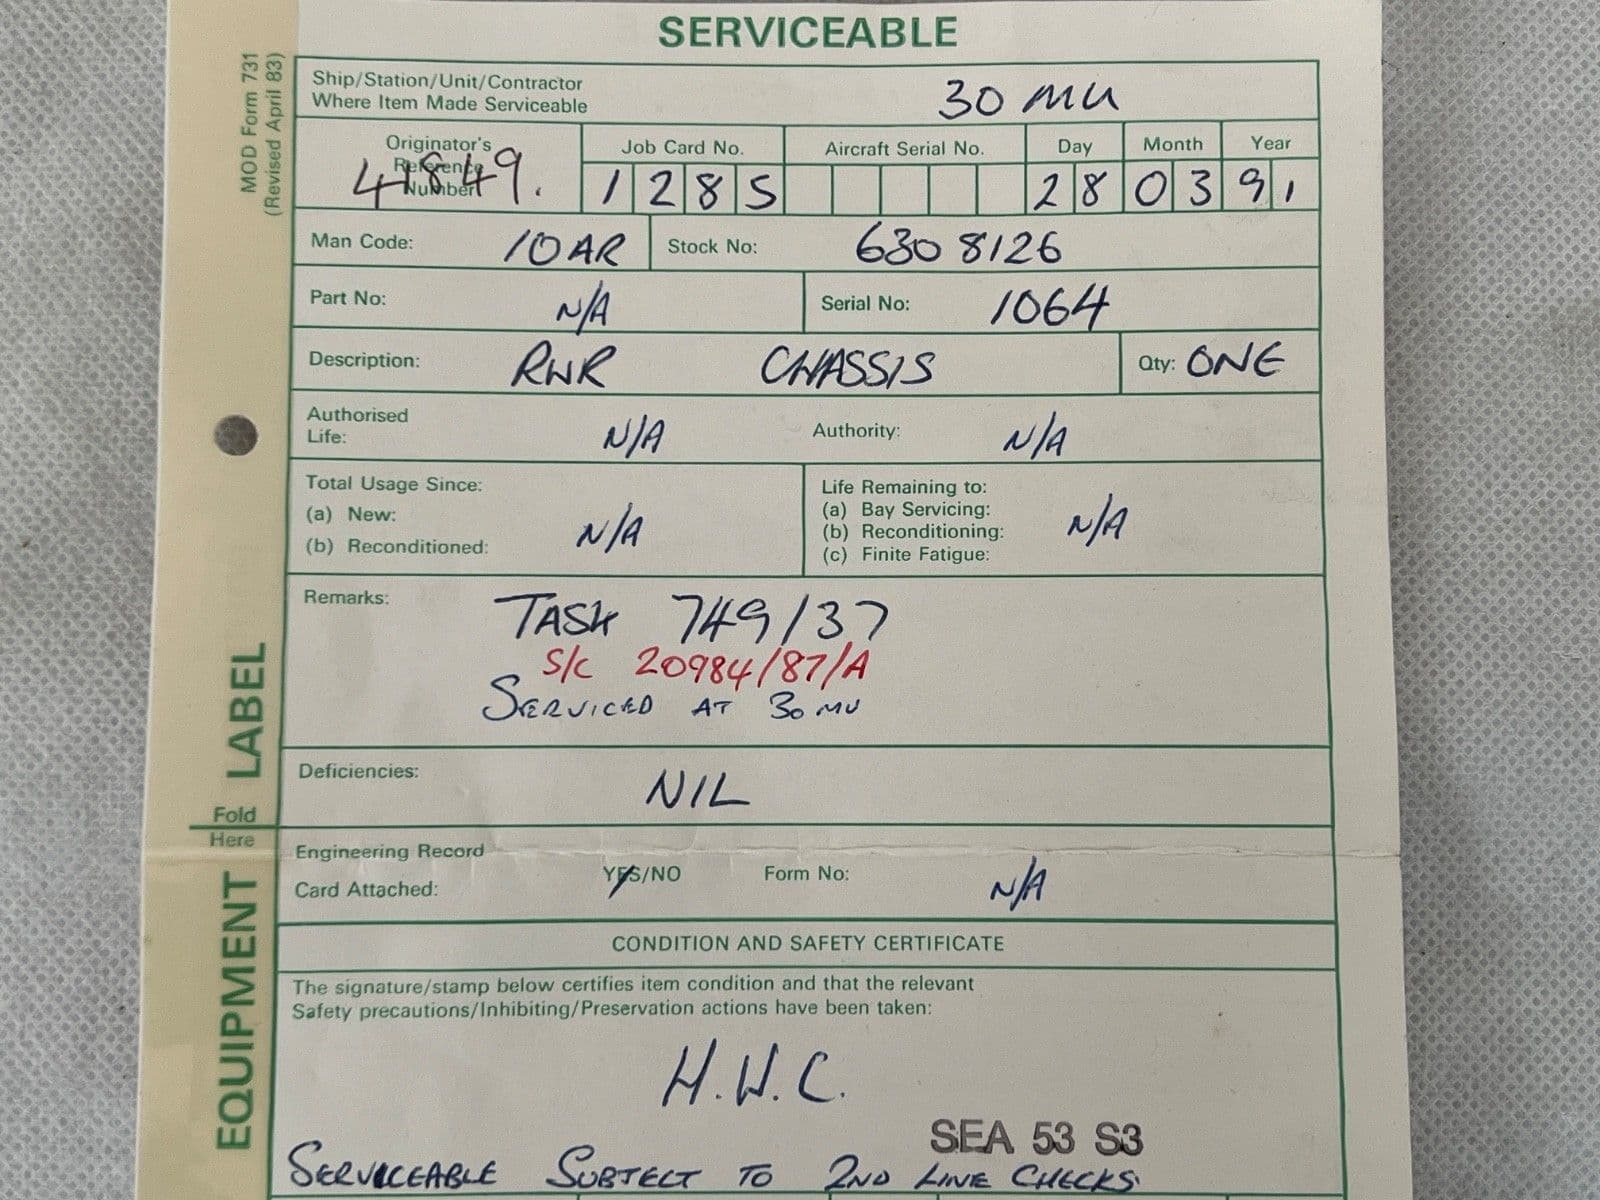 SERVICEABLE
MOD Form 731
(Revised April 83)
Ship/Station/Unit/Contractor
Where Item Made Serviceable
30 MU
Originator's
Reference
Number
41849.
Job Card No.
1285
Aircraft Serial No.
Day
28
Month
03
Year
91
Man Code: 10AR
Stock No: 630 8126
Part No: N/A
Serial No: 1064
Description: RWR CHASSIS
Qty: ONE
Authorised
Life: N/A
Authority: N/A
Total Usage Since:
(a) New:
(b) Reconditioned:
N/A
Life Remaining to:
(a) Bay Servicing:
(b) Reconditioning:
(c) Finite Fatigue:
N/A
Remarks: TASK 749/37
S/C 20984/87/A
SERVICED AT 30 MU
Deficiencies: NIL
Fold
Here
EQUIPMENT LABEL
Engineering Record
Card Attached: YES/NO
Form No: N/A
CONDITION AND SAFETY CERTIFICATE
The signature/stamp below certifies item condition and that the relevant
Safety precautions/Inhibiting/Preservation actions have been taken:
H.W.C.
SEA 53 S3
SERVICEABLE SUBJECT TO 2ND LINE CHECKS.